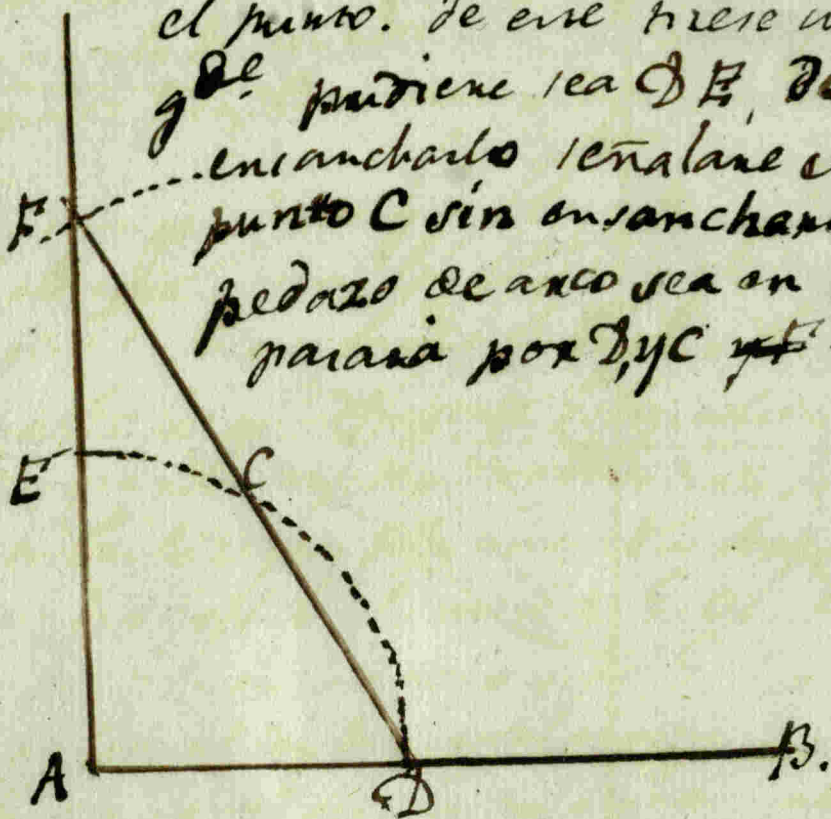 el punto. de este tirese u
gde pudiene sea DE, de
ensancharlo señalane e
punto C sin ensanchar
pedazo de arco sea en
pasara por D, y C y F
F
E
C
A
D
B.